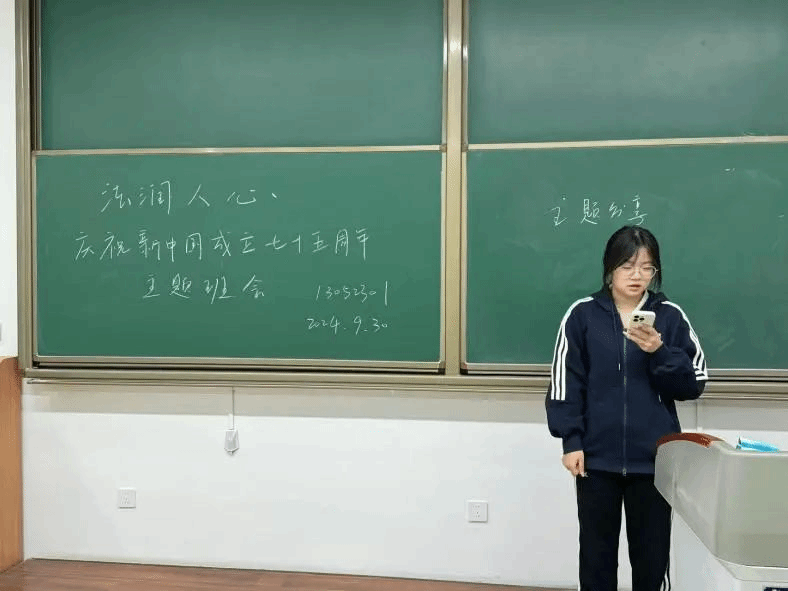 法润人心、
庆祝新中国成立七十五周年
主题班会 13052301
2024.9.30
主题分享